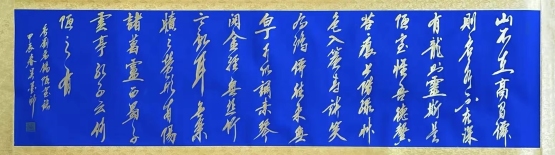 山不在高有仙
則名水不在深
有龍則靈斯是
陋室惟吾德馨
苔痕上階綠草
色入簾青談笑
有鴻儒往來無
白丁可以調素琴
閱金經無絲竹
之亂耳無案
牘之勞形南陽
諸葛廬西蜀子
雲亭孔子云何
陋之有
唐劉禹錫陋室銘
甲辰春